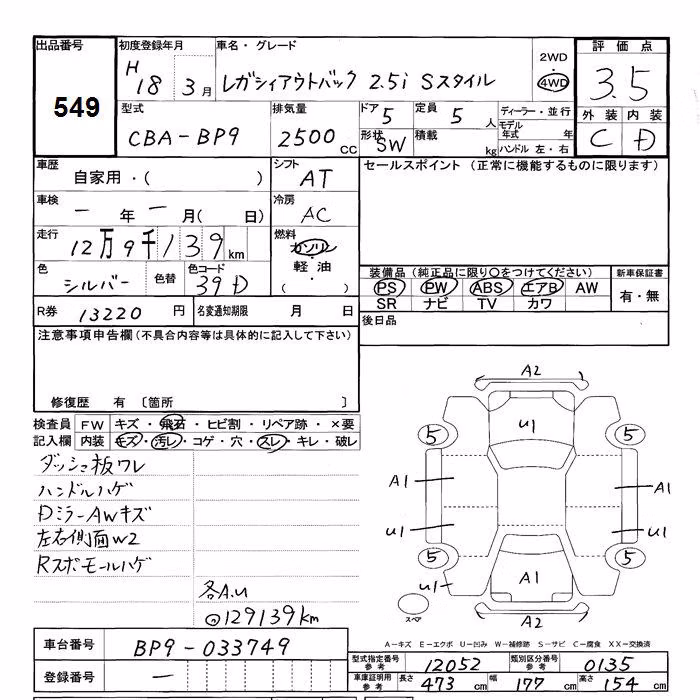 出品番号 初度登録年月 車名・グレード 2WD 評価点
549 H 18 3月 レガシィアウトバック 2.5i Sスタイル 4WD 3.5
型式 排気量 ドア 5 定員 5人 ディーラー・並行 外装 内装
CBA-BP9 2500 CC 形状 SW 積載 kg モデル年式 年 C D
ハンドル 左・右
車歴 自家用・( ) シフト AT セールスポイント (正常に機能するものに限ります)
車検 - 年 - 月( 日) 冷房 AC
走行 12万9千139 km 燃料 ガソリン・軽油・( )
色 シルバー 色替 色コード 39D 装備品 (純正品に限り○をつけてください) 新車保証書
PS PW ABS エアB AW 有・無
SR ナビ TV カワ
R券 13220 円 名変通知期限 月 日 後日品
注意事項申告欄 (不具合内容等は具体的に記入して下さい)
修復歴 有 〔箇所 〕
検査員 FW キズ・飛石・ヒビ割・リペア跡・×要
記入欄 内装 キズ・汚レ・コゲ・穴・スレ・キレ・破レ
ダッシュ板ワレ
ハンドルハゲ
DミラーAWキズ
左右側面W2
Rスポモールハゲ
各A.U
◎129139km
A2
U1
5 5
A1 A1
U1 U1
5 5
U1 A1
スペア A2
A-キズ E-エクボ U-凹み W-補修跡 S-サビ C-腐食 XX-交換済
車台番号 BP9-033749
登録番号 -
型式指定番号 参考 12052 類別区分番号 参考 0135
車庫証明用 参考 長さ 473 cm 幅 177 cm 高さ 154 cm